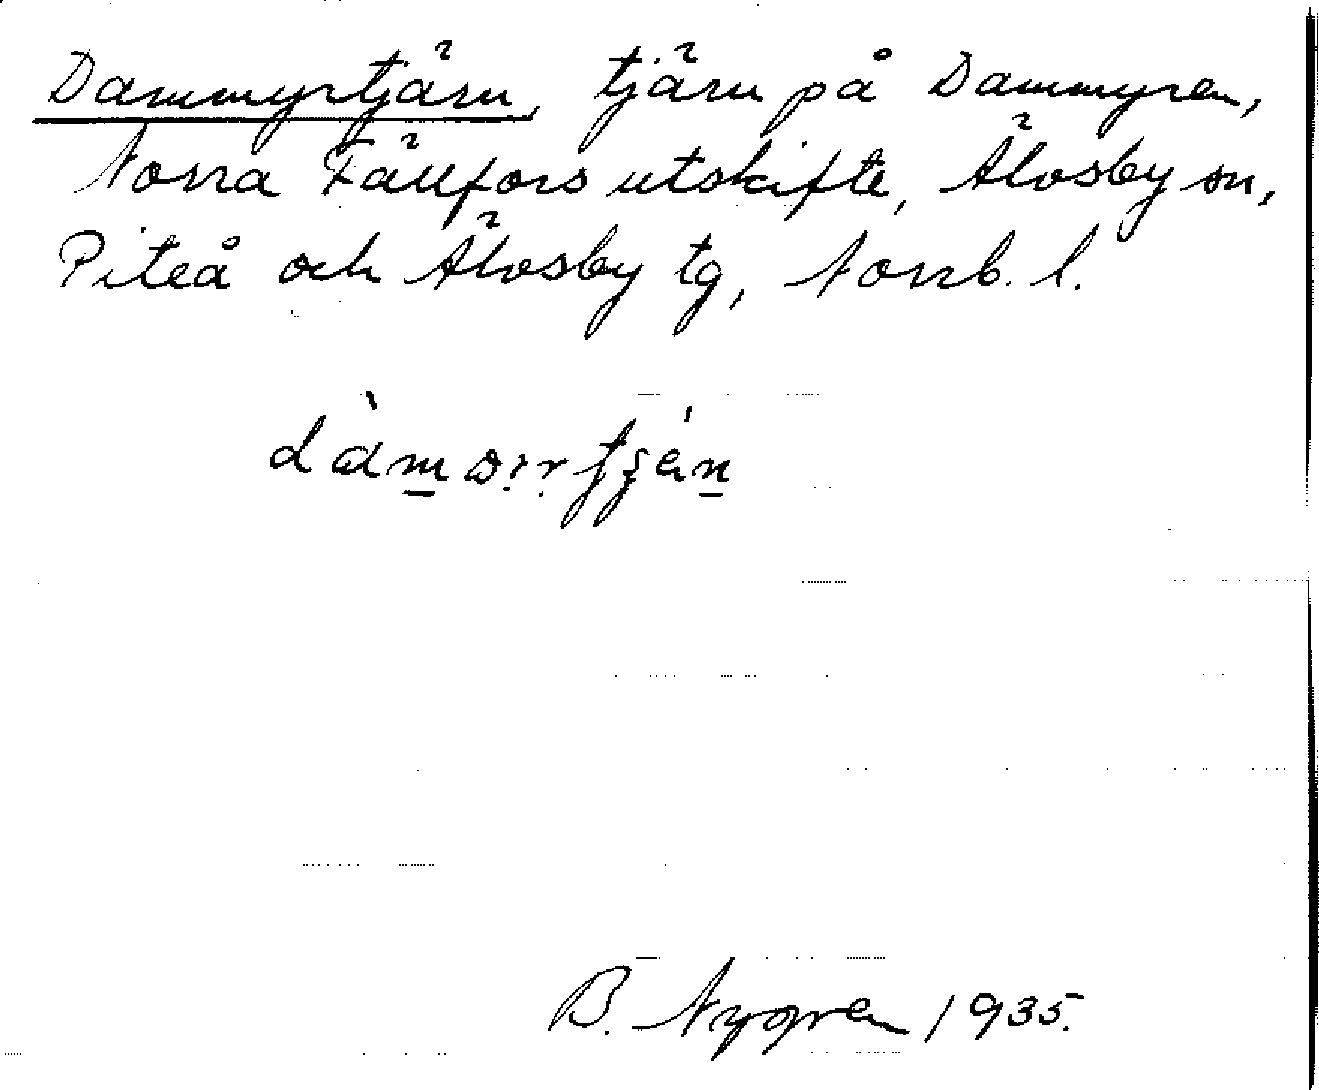 Dammyrtjärn, tjärn på Dammyren,
Norra Fällfors utskifte, Älvsby sn,
Piteå och Älvsby tg, Norrb. l.
B. Nygren 1935.